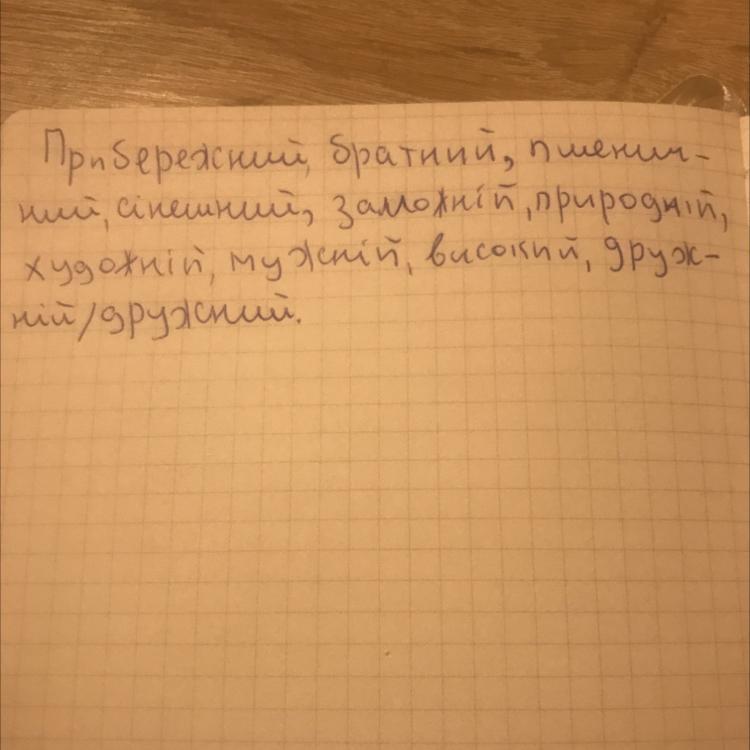 Прибережний, братний, пшенич-
ний, сінешний, заможній, природній,
художній, мужній, високий, друж-
ній/дружний.